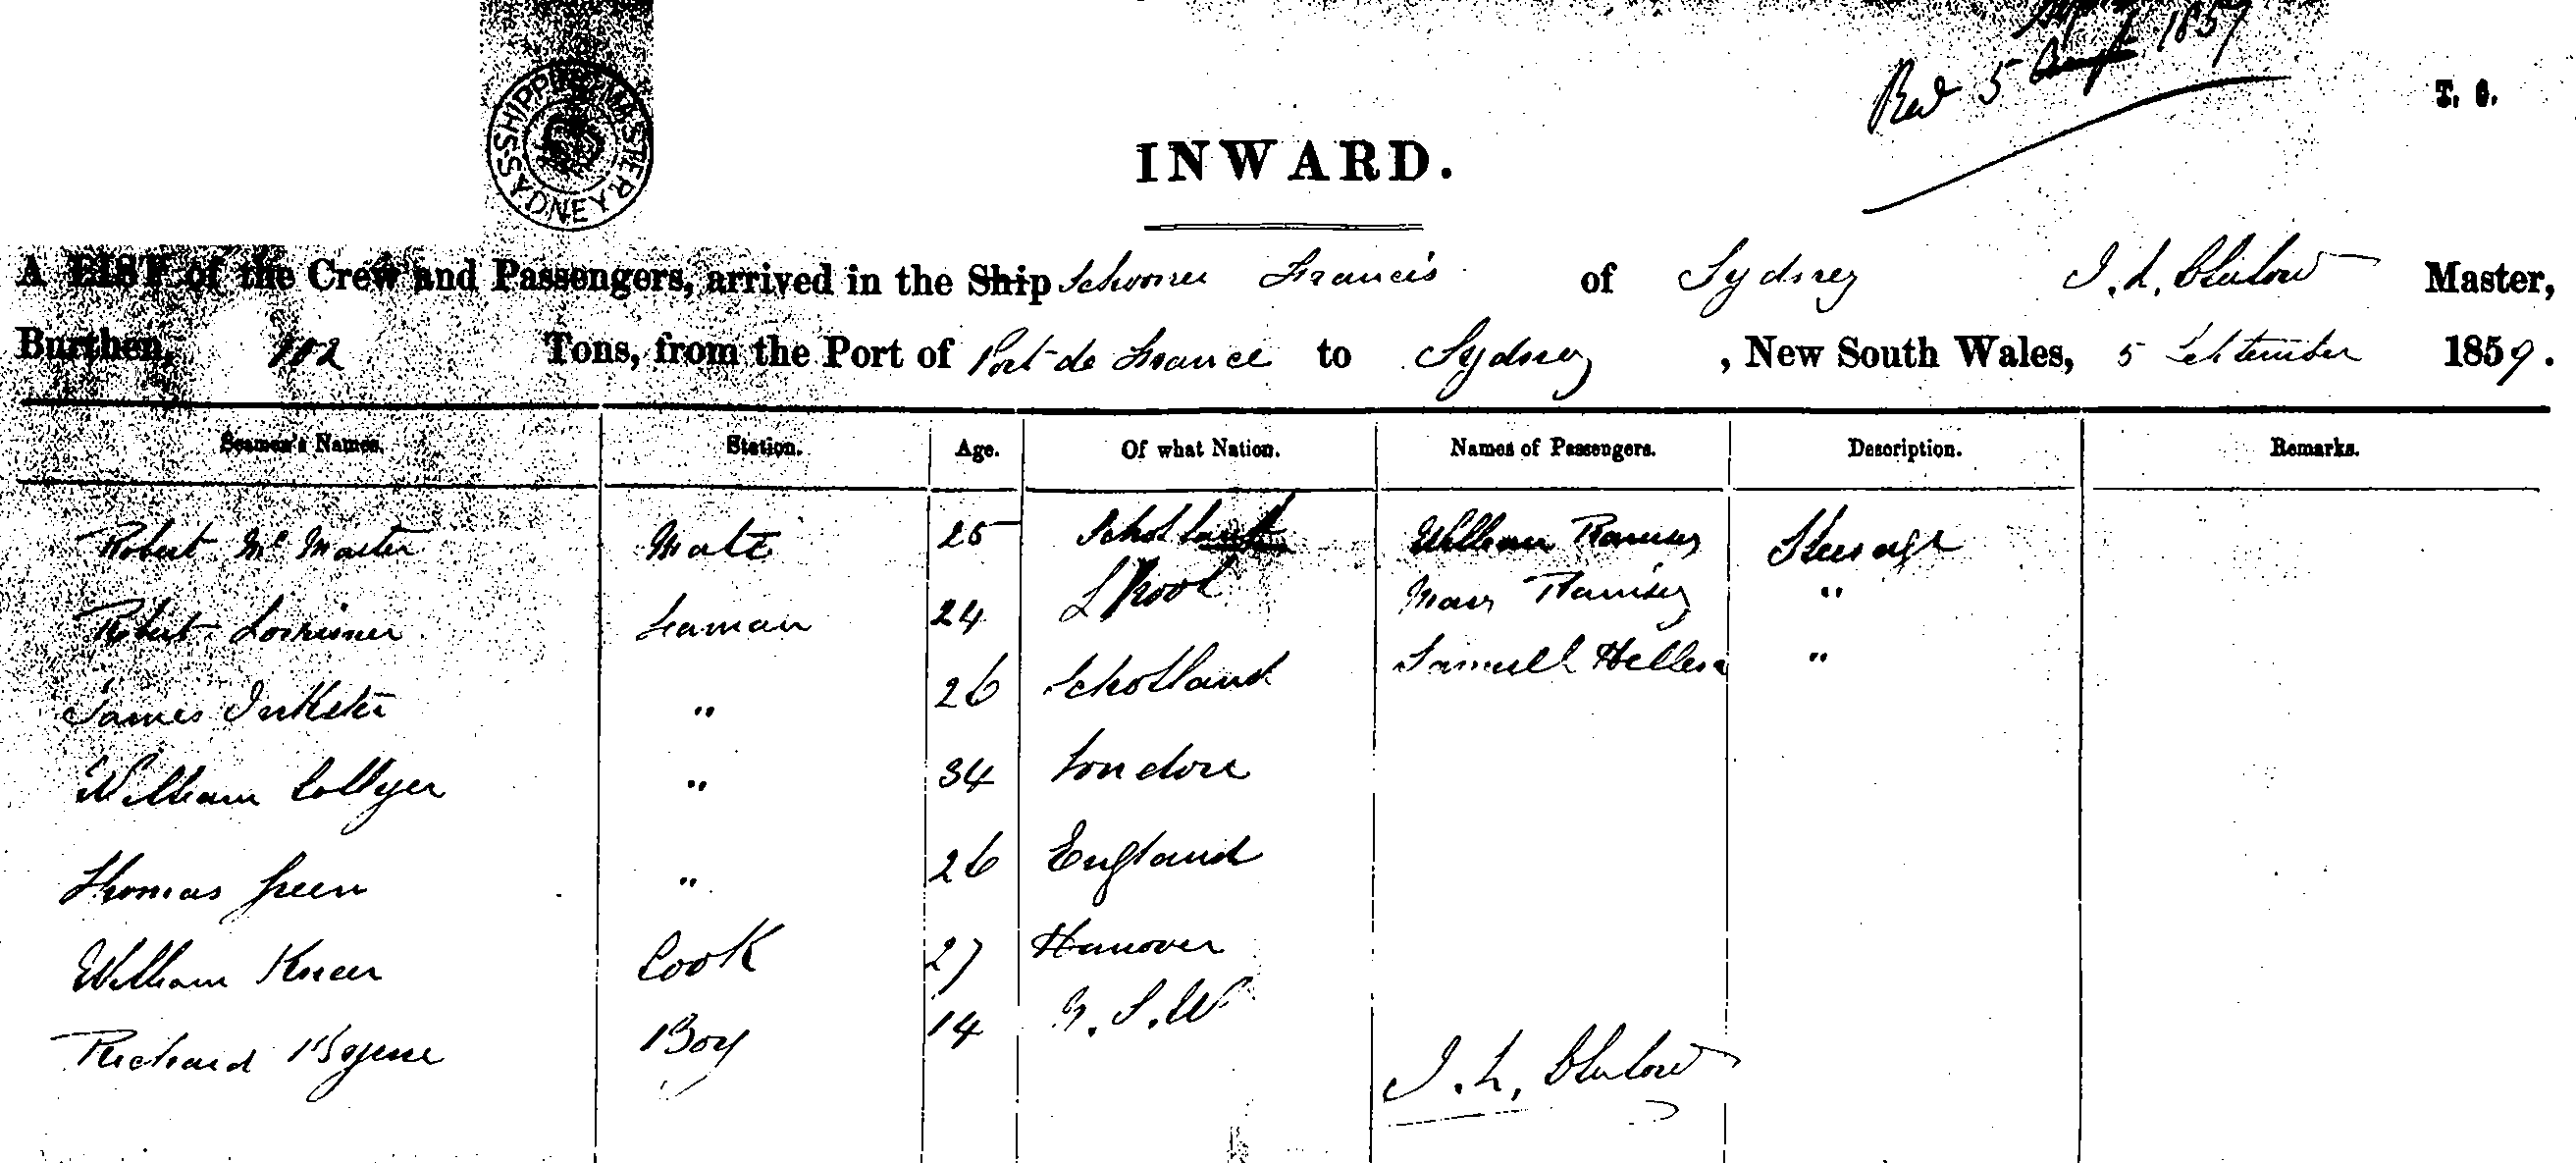 SHIPPING MASTER SYDNEY
Sept
Recd 5 Augt 1859
T. G.
INWARD.
A LIST of the Crew and Passengers, arrived in the Ship Schooner Francis of Sydney J. L. Master,
Burthen, 102 Tons, from the Port of Port de France to Sydney , New South Wales, 5 September 1859.
Seamen's Names. Station. Age. Of what Nation. Names of Passengers. Description. Remarks.
Robert McMaster Mate 25 Schotland William Ramsey Steerage
Robert Lorrimer Seaman 24 L'Pool Mary Ramsey "
James Inkster " 26 Schotland Samuell "
William Collyer " 34 London
Thomas Green " 26 England
William Cook 27 Hanover
Richard Byrne Boy 14 N. S. W
J. L.